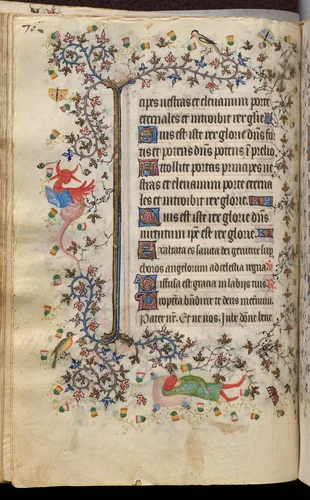 cipes uestras et eleuamini porte
eternales et introibit rex glie
Quis est iste rex glorie dns for
tis et potens dns potens in prelio
Attollite portas principes ue
stras et eleuamini porte eterna
les et introibit rex glorie
Quis est iste rex glorie dns
uirtutum ipe est rex glorie
Exaltata es sancta dei genitrix sup
choros angelorum ad celestia regna
Diffusa est gratia in labijs tuis
Propterea bndixit te deus in eternum
Pater nr. Et ne nos. Iube dne bene